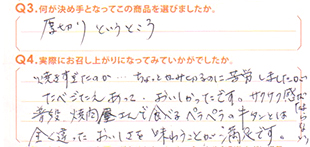 Q3.何が決め手となってこの商品を選びましたか。
厚切りというところ
Q4.実際にお召し上がりになってみていかがでしたか。
焼きすぎたのか…ちょっとかみ切るのに苦労しましたが
たべごたえあって・おいしかったです。サクサク感は
普段、焼肉屋さんで食べるペラペラの牛タンとは
全く違ったおいしさを味わうことができ満足です。